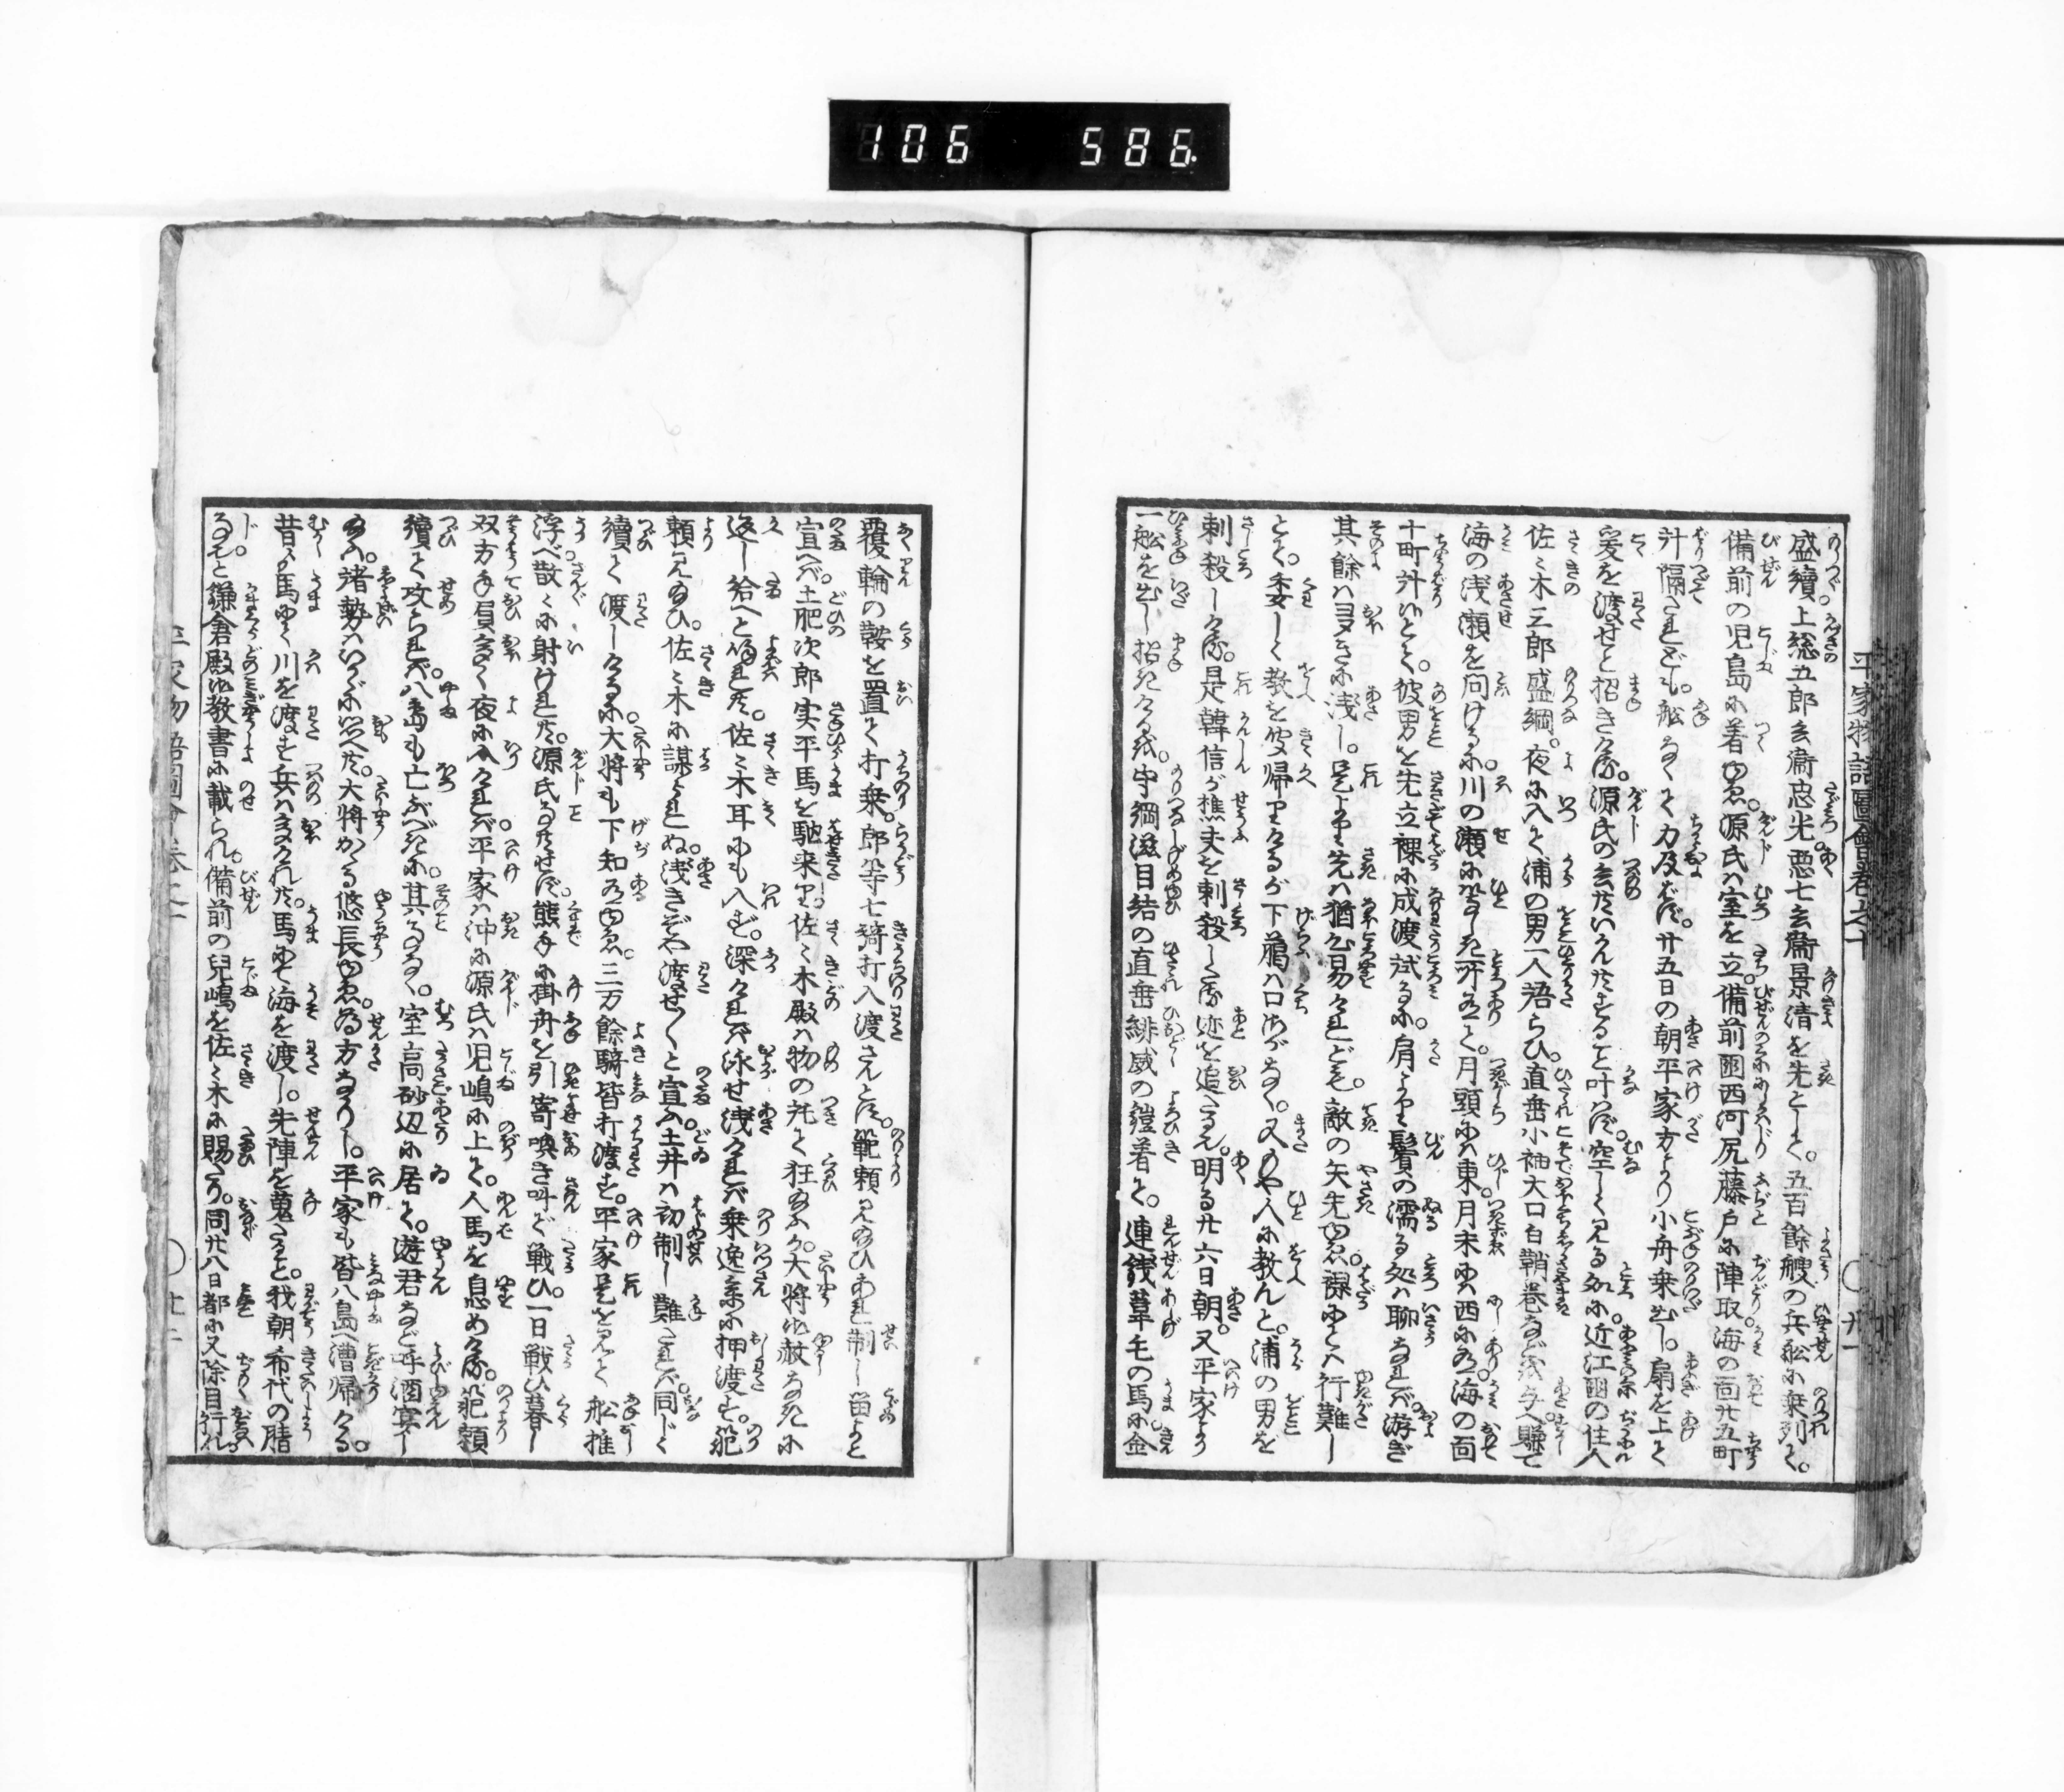 106 586
平家物語圖會卷之十
盛續上総五郎兵衞忠光悪七兵衞景清を先として五百餘艘の兵船に乗列て
備前の児島に着ゆゑ源氏ハ室を立備前國西河尻藤戸に陣取海の面廿五町
計隔たれども船なくて力及ばず廿五日の朝平家方より小舟乗出し扇を上て
爰を渡せと招きける源氏の兵共いかゞせんとすること叶はず空しく見る処に近江國の住人
佐々木三郎盛綱夜に入て浦の男一人語らひ直垂小袖大口白鞘巻など與へ賺て
海の浅瀬を問けるに川の瀬に等しき所有て月頭にハ東月末ハ西に有海の面
十町計といふ彼男を先立裸に成渡試るに肩より鬢の濡る処ハ聊なれバ游ぎ
其餘ハ至て浅し是より先ハ猶心易けれども敵の矢先ゆゑ裸にてハ行難し
とて委しく教を受帰りけるが下臈ハ口さがなく又もや人に教んと浦の男を
刺殺しける是韓信が樵夫を刺殺しける迹を追たるなり明る廿六日朝又平家より
一船を出し招きける盛綱滋目結の直垂緋威の鎧着て連銭葦毛の馬に金
覆輪の鞍を置て打乗郎等七騎打入渡さんとす範頼見給ひあれ制し留よと
宣へバ土肥次郎実平馬を馳来り佐々木殿ハ物の託て狂給ふか大将の赦なきに
返し給へと呼れ共佐々木耳にも入ず深けれバ泳せ浅けれバ乗逸系に押渡す範
頼見給ひ佐々木に謀られぬ浅きぞや渡せ〱と宣ふ土井ハ初制し難けれバ同じく
續て渡しけるに大将も下知有ゆゑ三万餘騎皆打渡す平家是を見て船推
浮べ散々に射けれ共源氏事ともせず熊手に掛舟を引寄喚き叫で戦ひ一日戦ひ暮し
双方手負多く夜に入けれバ平家ハ沖に源氏ハ児嶋に上て人馬を息めける範頼
續て攻られバ八島も亡ぶべきに其事なく室高砂辺に居て遊君など呼酒宴し
給ふ諸勢ハいかゞに思へ共大将かゝる悠長ゆゑ為方なかりし平家も皆八島へ漕帰ける
昔より馬にて川を渡す兵ハ多けれ共馬にて海を渡し先陣を蒐ること我朝希代の勝
事なりと鎌倉殿の教書に載られ備前の兒嶋を佐々木に賜ふ同廿八日都に又除目行れ
平家物語圖會卷之十
廿二